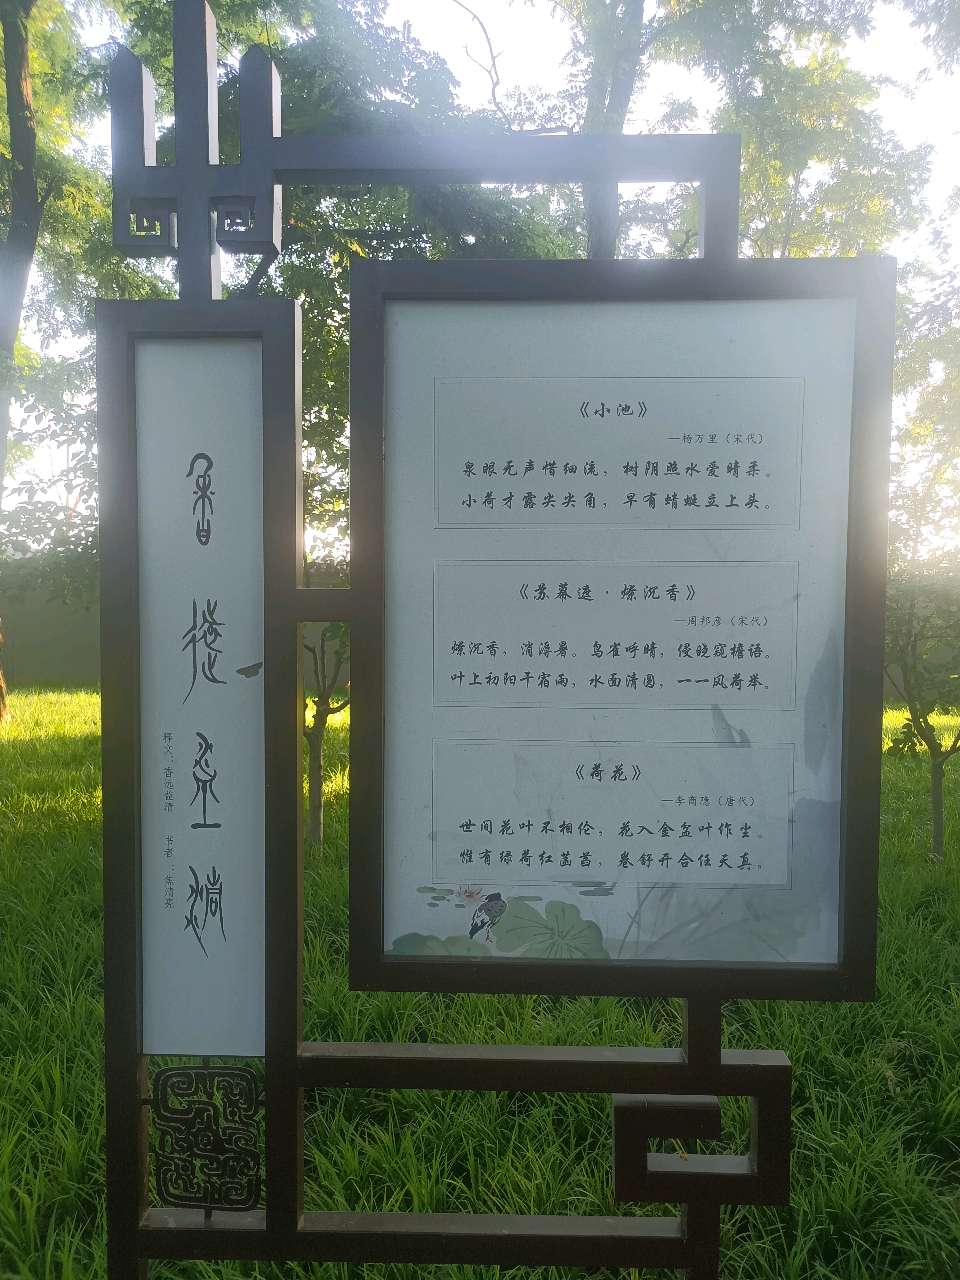 香远益清
释文：香远益清
书者：焦清亮
《小池》
—杨万里（宋代）
泉眼无声惜细流，树阴照水爱晴柔。
小荷才露尖尖角，早有蜻蜓立上头。
《苏幕遮·燎沉香》
—周邦彦（宋代）
燎沉香，消溽暑。鸟雀呼晴，侵晓窥檐语。
叶上初阳干宿雨，水面清圆，一一风荷举。
《荷花》
—李商隐（唐代）
世间花叶不相伦，花入金盆叶作尘。
惟有绿荷红菡萏，卷舒开合任天真。